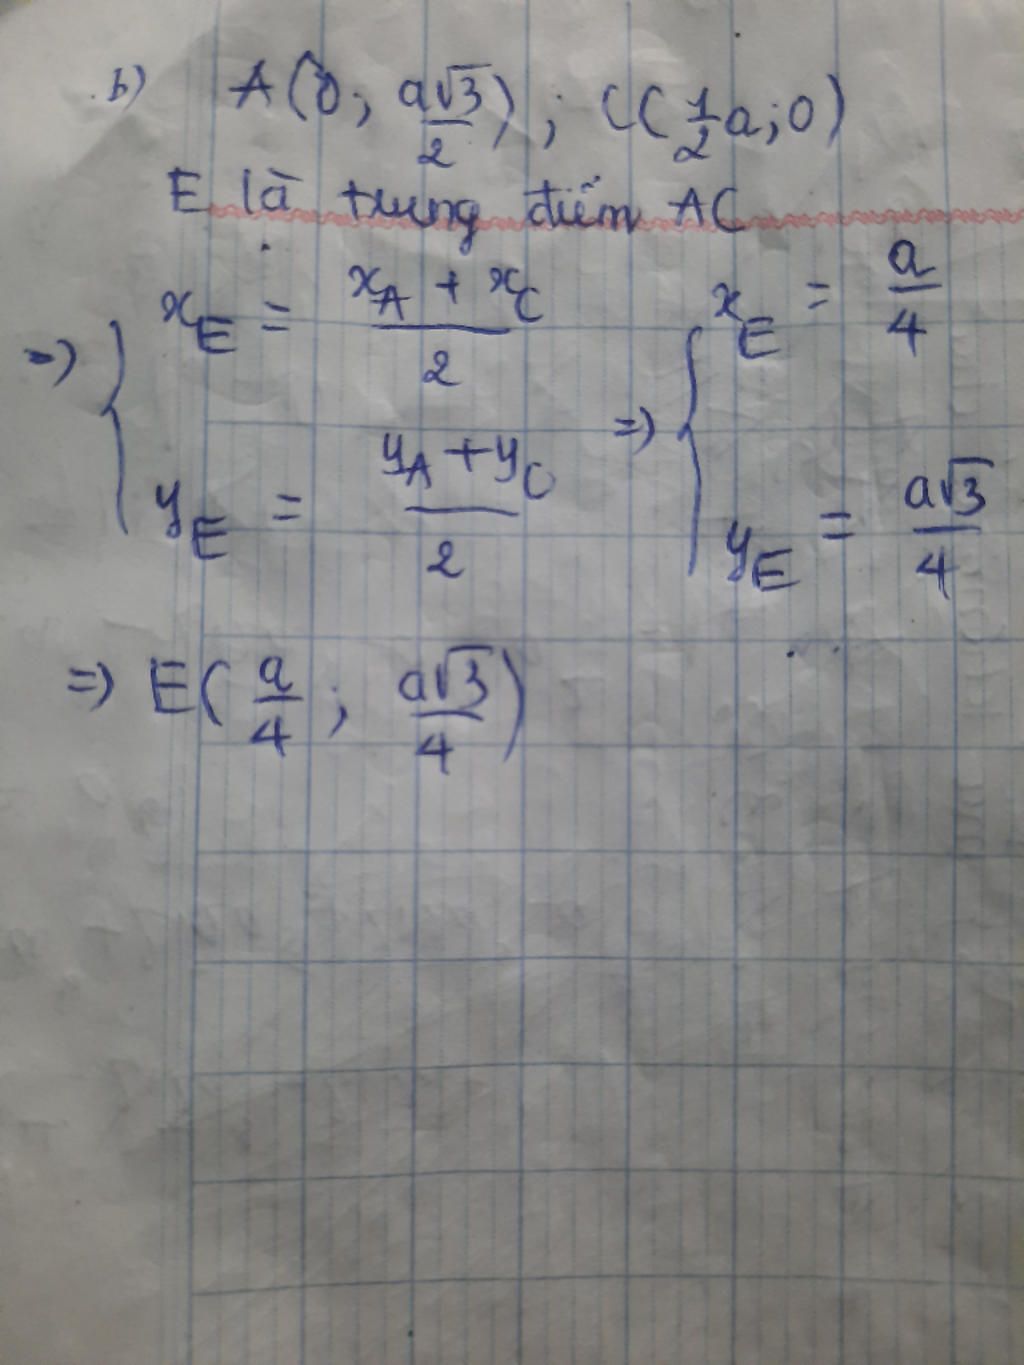 b) A(0; a√3/2); C(1/2 a; 0)
E là trung điểm AC
=> { x_E = (x_A + x_C)/2 => { x_E = a/4
y_E = (y_A + y_C)/2 y_E = a√3/4
=> E(a/4; a√3/4)